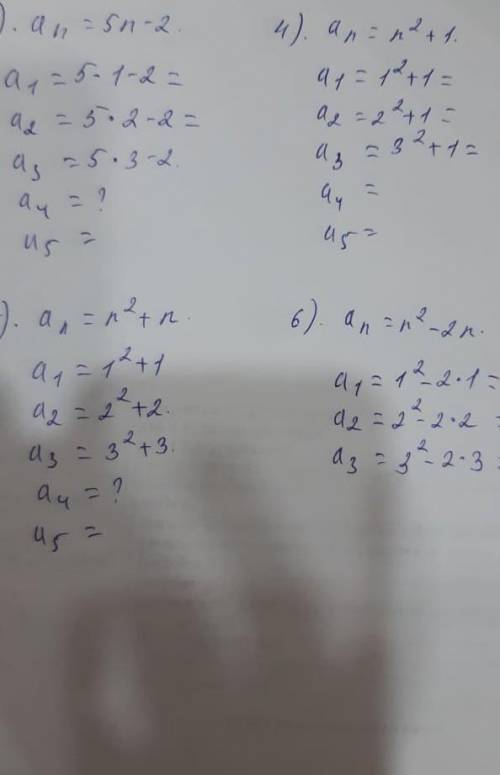 ). aₙ = 5n-2.
a₁ = 5·1-2=
a₂ = 5·2-2=
a₃ = 5·3-2.
a₄ = ?
a₅ =
4). aₙ = n²+1.
a₁ = 1²+1=
a₂ = 2²+1=
a₃ = 3²+1=
a₄ =
a₅ =
). aₙ = n²+n.
a₁ = 1²+1
a₂ = 2²+2.
a₃ = 3²+3.
a₄ = ?
a₅ =
6). aₙ = n²-2n.
a₁ = 1²-2·1=
a₂ = 2²-2·2=
a₃ = 3²-2·3=